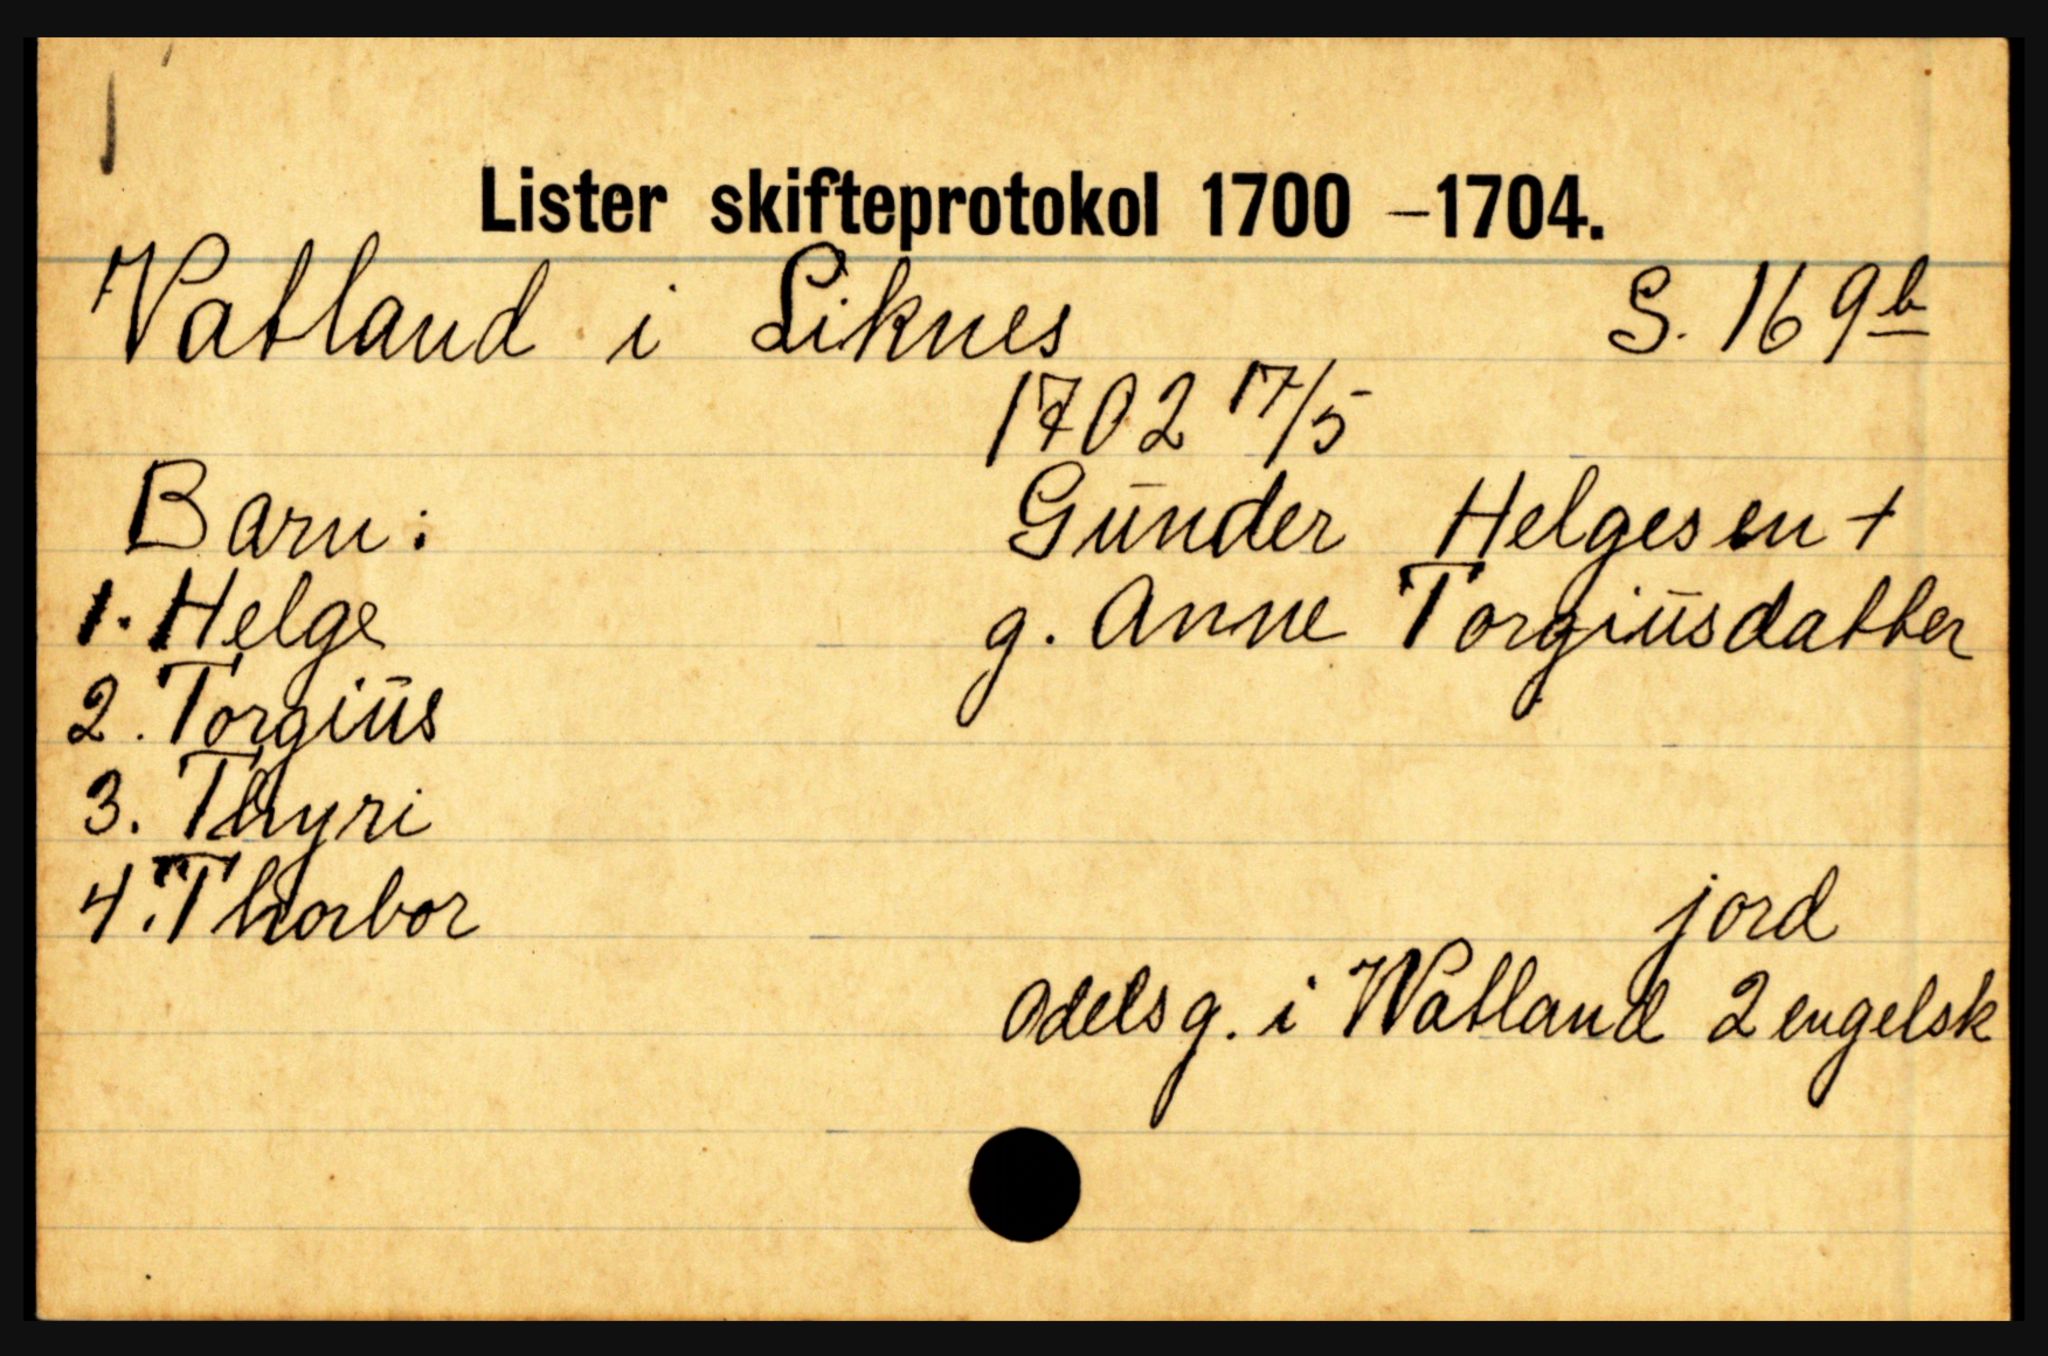 Lister skifteprotokol 1700 –1704.
Vatland i Liknes S. 169b
1702 17/5
Barn: Gunder Helgesen +
1. Helge g. Anne Torgiusdatter
2. Torgius
3. Thyri
4. Thorbor jord
Odelsg. i Watland 2 engelsk